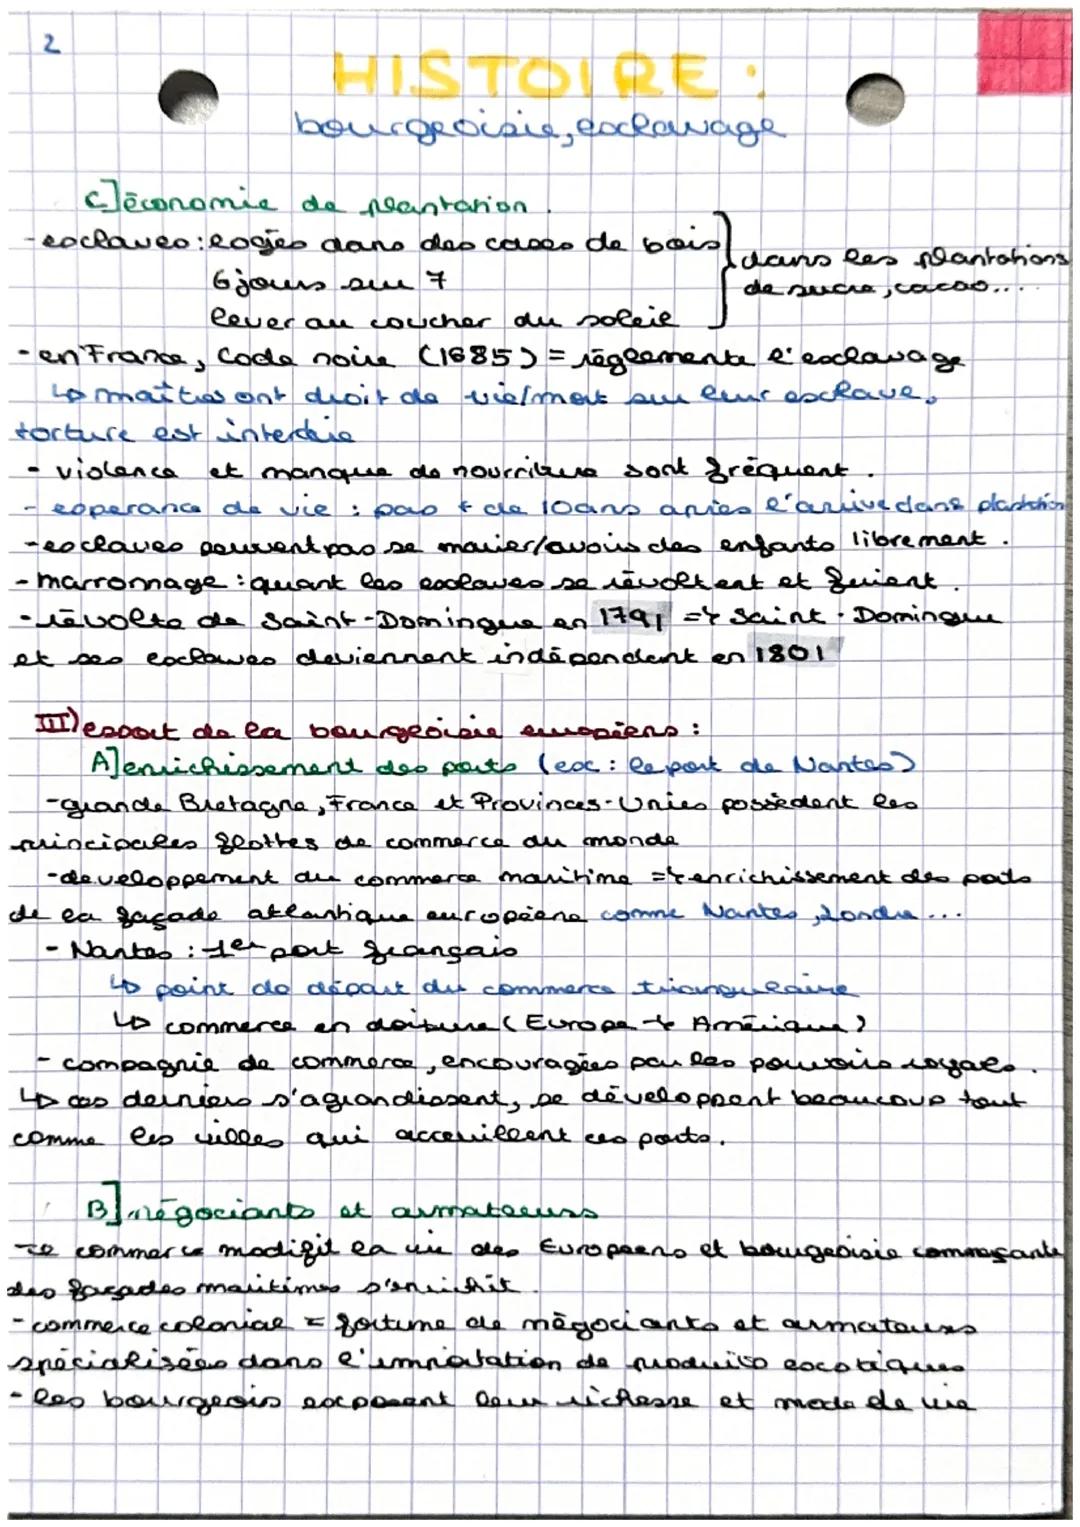 2
HISTOIRE :
bourgeoisie, esclavage
C] économie de plantation.
- esclaves : logés dans des cases de bois
6 jours sur 7
lever au coucher du soleil
dans les plantations
de sucre, cacao....
- en France, Code noire (1685) = réglemente l'esclavage
↳ maîtres ont droit de vie/mort sur leur esclave,
torture est interdie
- violence et manque de nourriture sont fréquent.
- esperance de vie : pas + de 10ans après l'arrivé dans plantation
- esclaves peuvent pas se marier/avoir des enfants librement.
- marronnage : quant les esclaves se révoltent et fuient.
- révolte de Saint-Domingue en 1791 => Saint-Domingue
et ses esclaves deviennent indépendant en 1801
III) essort de la bourgeoisie européens :
A] enrichissement des ports (ex : le port de Nantes)
- grande Bretagne, France et Provinces-Unies possèdent les
principales flottes de commerce du monde
- developpement du commerce maritime => enrichissement des ports
de la façade atlantique européene comme Nantes, Londre ...
- Nantes : 1er port français
↳ point de départ du commerce triangulaire
↳ commerce en doiture (Europe → Amérique)
- compagnie de commerce, encouragées par les pouvoirs royals.
↳ ces derniers s'agrandissent, se développent beaucoup tout
comme les villes qui acceuillent ces ports.
B] négociants et armateurs
- le commerce modifit la vie des Européens et bourgeoisie commerçante
des façades maritimes s'enrichit.
- commerce colonial = fortune de négociants et armateurs
spécialisées dans l'importation de produits exotiques
- les bourgeois exposent leur richesse et mode de vie